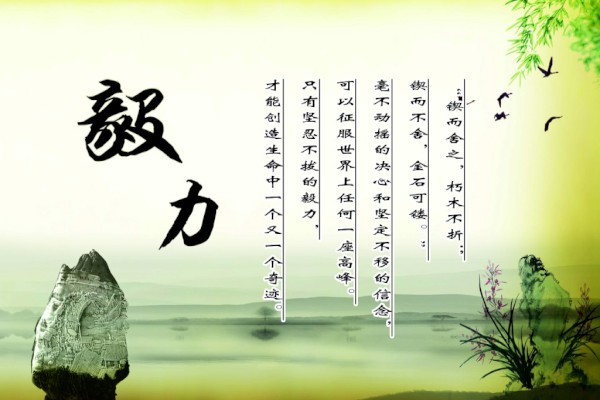 毅力
“锲而舍之，朽木不折；
锲而不舍，金石可镂。”
毫不动摇的决心和坚定不移的信念，
可以征服世界上任何一座高峰。
只有坚忍不拔的毅力，
才能创造生命中一个又一个奇迹。